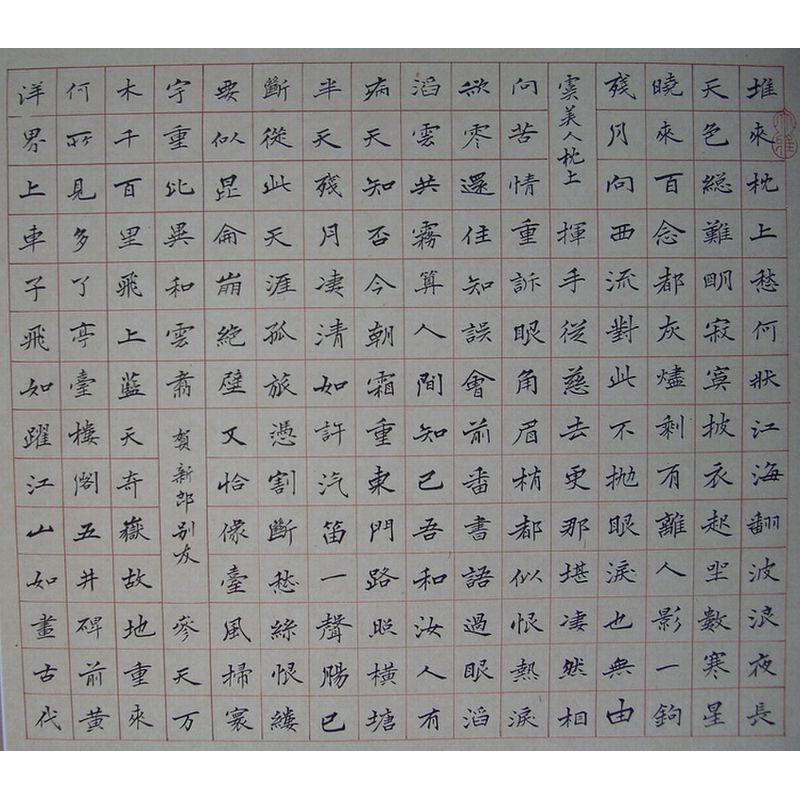 堆來枕上愁何狀江海翻波浪夜長
天色総難明寂寞披衣起坐數寒星
曉來百念都灰燼剩有離人影一鉤
殘月向西流對此不抛眼淚也無由
虞美人枕上 揮手從慈去更那堪凄然相
向苦情重訴眼角眉梢都似恨熱淚
欲零還住知誤會前番書語過眼滔
滔雲共霧算人間知己吾和汝人有
病天知否今朝霜重東門路照橫塘
半天殘月凄清如許汽笛一聲腸已
斷從此天涯孤旅憑割斷愁絲恨縷
要似崑侖崩絕壁又恰像臺風掃寰
宇重比異和雲翥 賀新郎別友 參天万
木千百里飛上藍天奇嶽故地重來
何所見多了亭臺樓閣五井碑前黃
洋界上車子飛如躍江山如畫古代